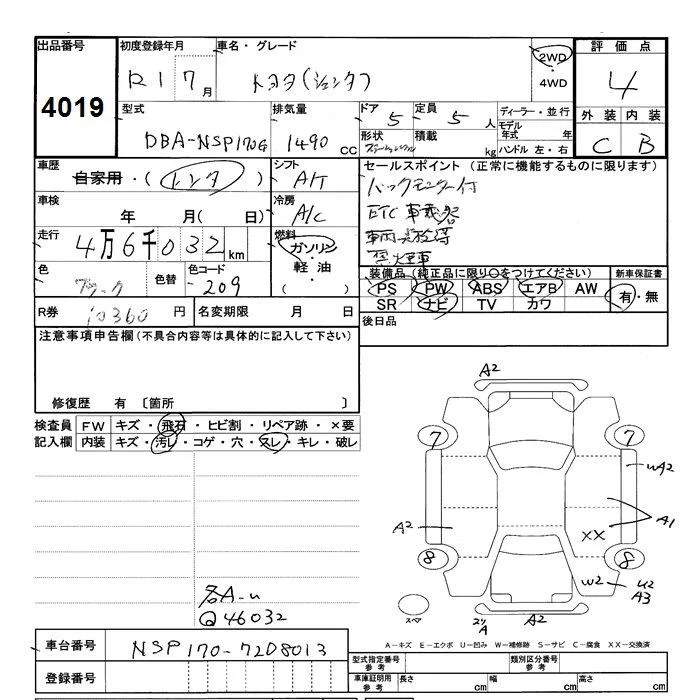 出品番号 初度登録年月 車名・グレード 2WD 4WD 評価点
4019 R1 7月 トヨタ(シエンタ) 4
型式 排気量 ドア 5 定員 5人 ディーラー・並行 外装 内装
DBA-NSP170G 1490 CC 形状 積載 kg モデル年式 年 ハンドル 左・右 C B
車歴 シフト セールスポイント (正常に機能するものに限ります)
自家用・(レンタ) A/T バックモニター付
車検 年 月(日) 冷房 A/C ETC車載器
走行 4万6千032km 燃料 ガソリン・軽油・( )
色 ブラック 色替 色コード 209
禁煙車
装備品(純正品に限り○をつけてください) 新車保証書
PS PW ABS エアB AW 有・無
SR ナビ TV カワ
R券 10360円 名変期限 月 日 後日品
注意事項申告欄(不具合内容等は具体的に記入して下さい)
修復歴 有 〔箇所 〕
検査員記入欄 FW キズ・飛石・ヒビ割・リペア跡・×要
内装 キズ・汚レ・コゲ・穴・スレ・キレ・破レ
A2
7 7
wA2
A2 A1
XX
8 8
w2 U2 A3
スペア A A2
各A-u
@46032
A-キズ E-エクボ U-凹み W-補修跡 S-サビ C-腐食 XX-交換済
車台番号 NSP170-7208013
登録番号
型式指定番号 参考 類別区分番号 参考
車庫証明用 参考 長さ cm 幅 cm 高さ cm